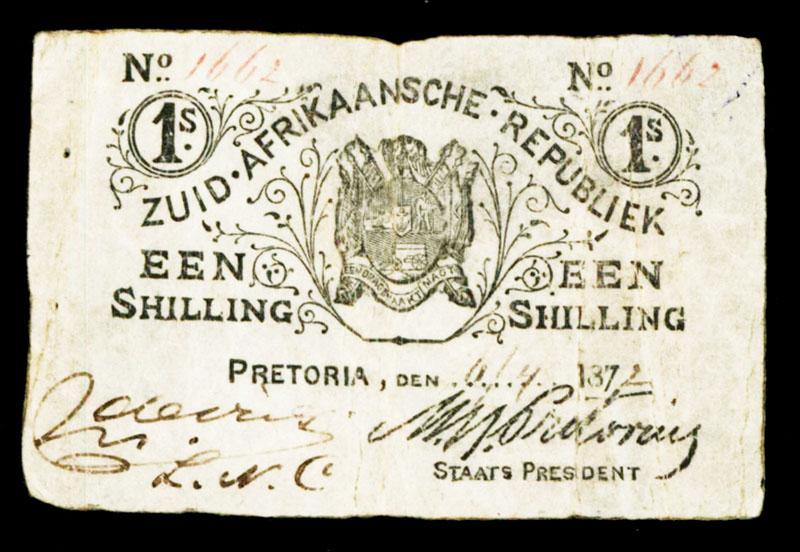 No. 1662 No. 1662
1s. 1s.
ZUID·AFRIKAANSCHE·REPUBLIEK
EENDRAGT MAAKT MAGT
EEN SHILLING
EEN SHILLING
PRETORIA, DEN 4. 1872
M W Pretorius
L. N. C
STAATS PRESIDENT